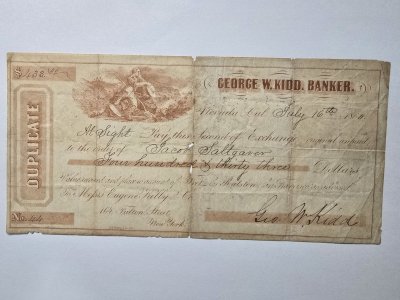 $433.
GEORGE W. KIDD. BANKER.
Nevada Cal July 16th
At Sight Pay this Second of Exchange original unpaid
to the order of Jacob
Four hundred & thirty three Dollars
Value received and place to account of
To Messrs Eugene Kelly & Co
164 Fulton Street
New York.
Geo W. Kidd
DUPLICATE
No.